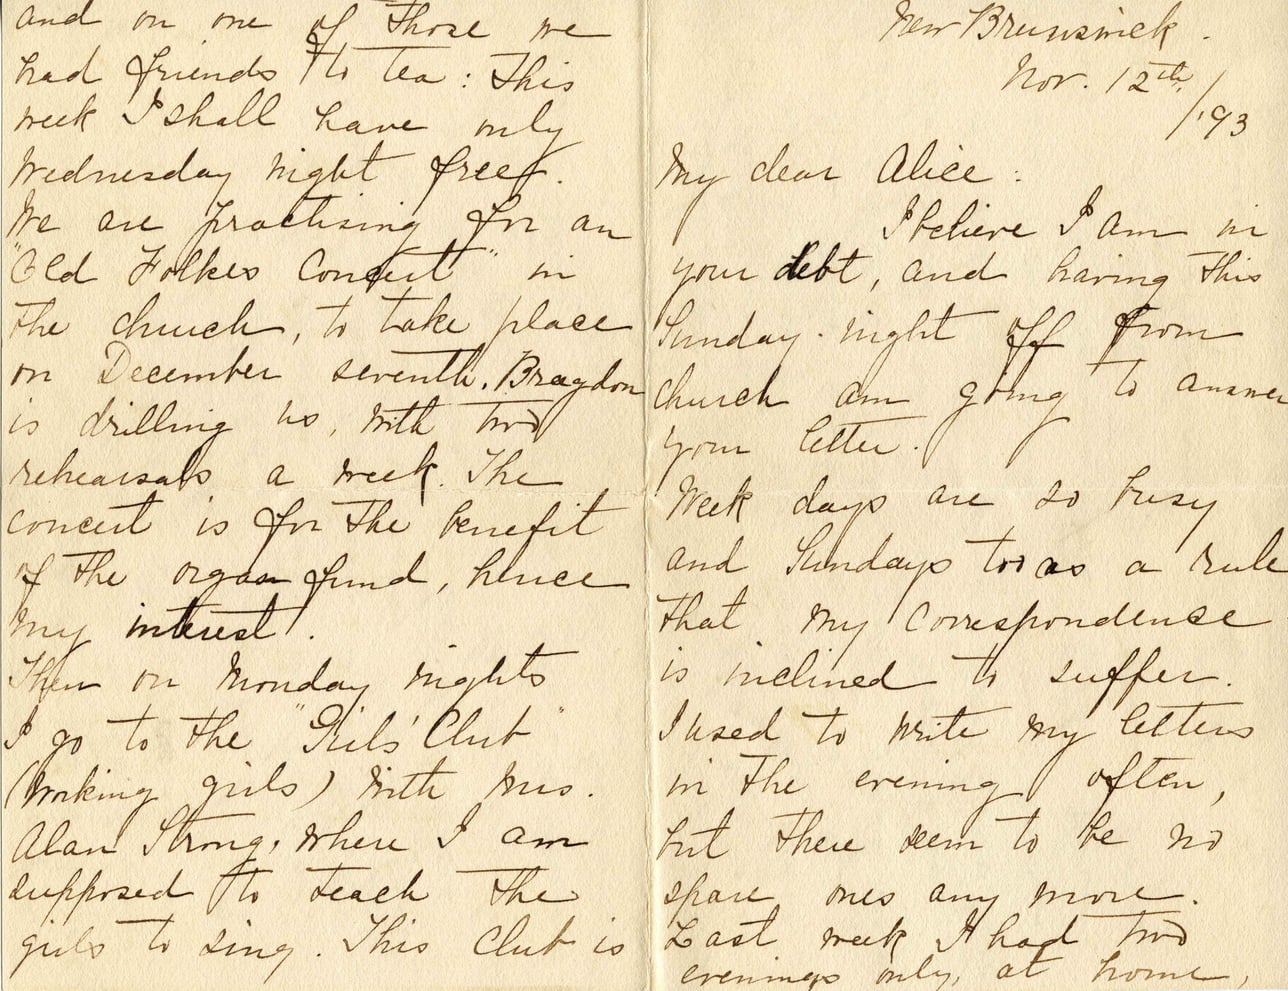 New Brunswick.
Nov. 12th/'93
My dear Alice:
I believe I am in
your debt, and having this
Sunday-night off from
church am going to answer
your letter.
Week days are so busy
and Sundays too as a rule
that my correspondence
is inclined to suffer.
I used to write my letters
in the evening often,
but there seem to be no
spare ones any more.
Last week I had two
evenings only, at home,
and on one of those we
had friends to tea: This
week I shall have only
Wednesday night free.
We are practising for an
"Old Folkes Concert" in
the church, to take place
on December seventh. Bragdon
is drilling us, with two
rehearsals a week. The
concert is for the benefit
of the organ fund, hence
my interest.
Then on Monday nights
I go to the "Girls' Club"
(working girls) with Mrs.
Alan Strong, where I am
supposed to teach the
girls to sing. This Club is